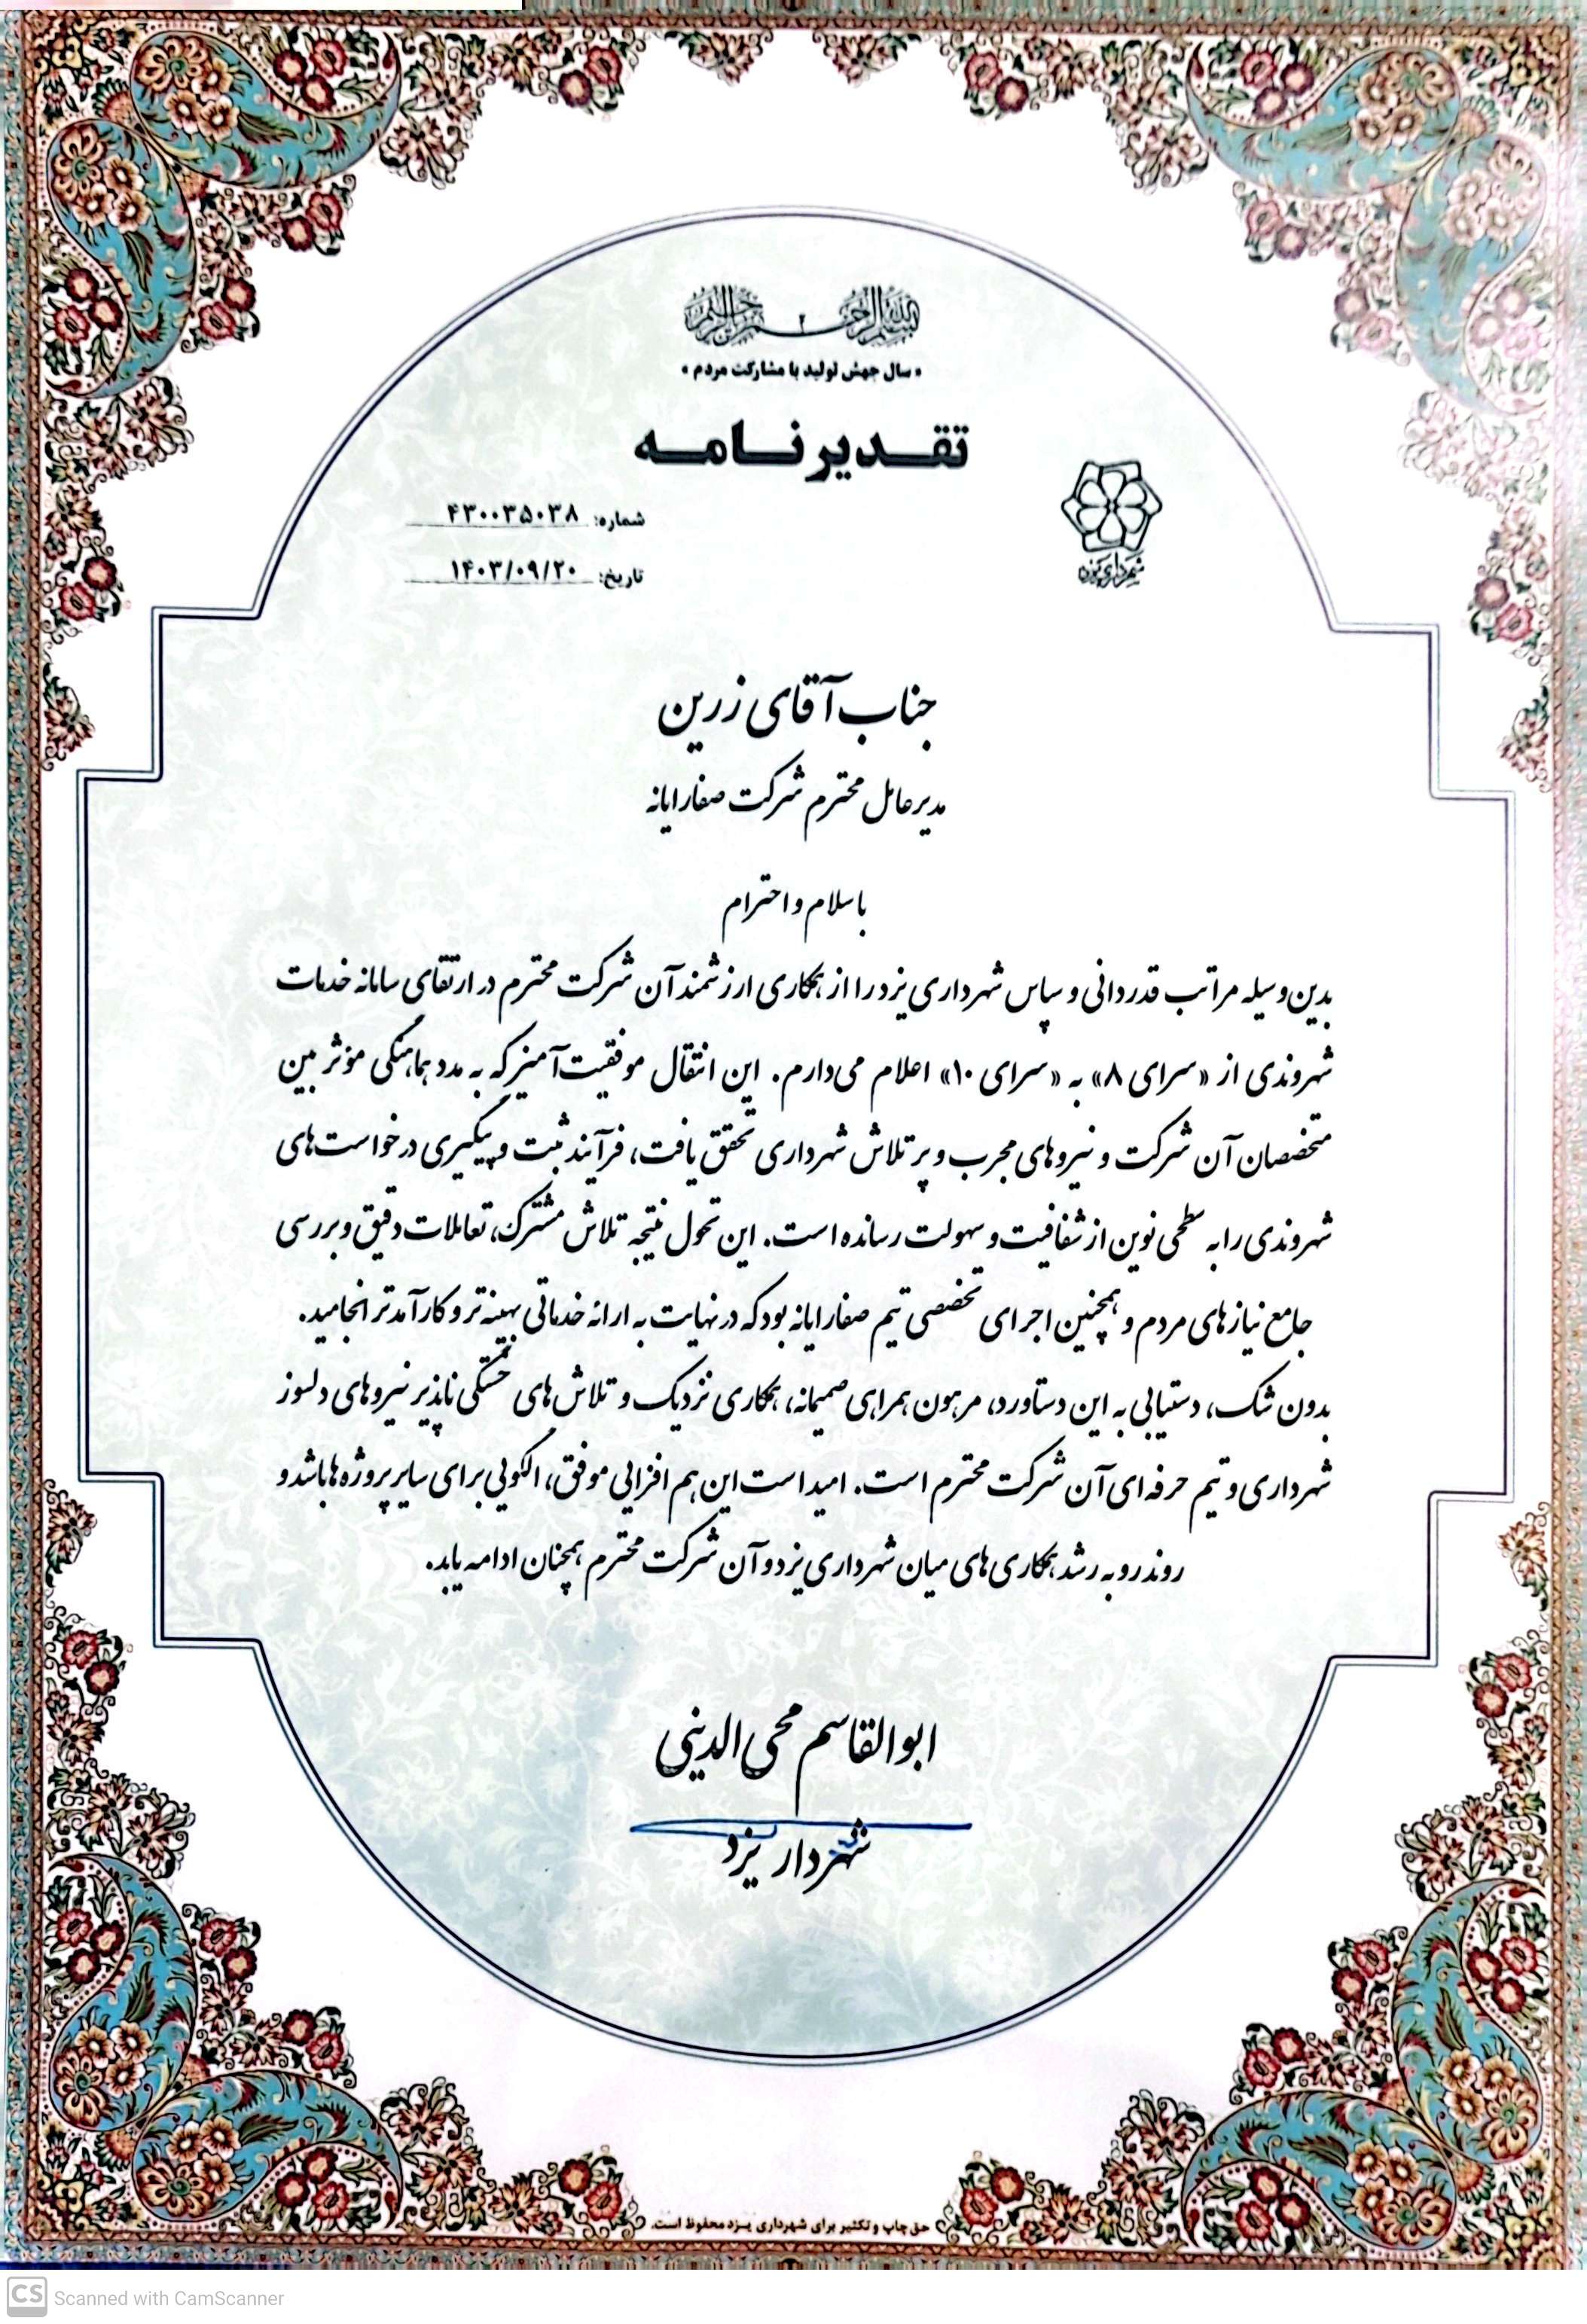 بسم الله الرحمن الرحیم
«سال جهش تولید با مشارکت مردم»
تقدیرنامه
شماره: ۴۳۰۰۳۵۰۳۸
تاریخ: ۱۴۰۳/۰۹/۲۰
شهرداری یزد
جناب آقای زرین
مدیرعامل محترم شرکت صفارایانه
با سلام و احترام
بدین وسیله مراتب قدردانی و سپاس شهرداری یزد را از همکاری ارزشمند آن شرکت محترم در ارتقای سامانه خدمات
شهروندی از «سرای ۸» به «سرای ۱۰» اعلام می‌دارم. این انتقال موفقیت‌آمیز که به مدد هماهنگی مؤثر بین
متخصصان آن شرکت و نیروهای مجرب و پرتلاش شهرداری تحقق یافت، فرآیند ثبت و پیگیری درخواست‌های
شهروندی را به سطحی نوین از شفافیت و سهولت رسانده است. این تحول نتیجه تلاش مشترک، تعاملات دقیق و بررسی
جامع نیازهای مردم و همچنین اجرای تخصصی تیم صفارایانه بود که در نهایت به ارائه خدماتی بهینه‌تر و کارآمدتر انجامید.
بدون شک، دستیابی به این دستاورد، مرهون همراهی صمیمانه، همکاری نزدیک و تلاش‌های خستگی ناپذیر نیروهای دلسوز
شهرداری و تیم حرفه‌ای آن شرکت محترم است. امید است این هم‌افزایی موفق، الگویی برای سایر پروژه‌ها باشد و
روند رو به رشد همکاری‌های میان شهرداری یزد و آن شرکت محترم همچنان ادامه یابد.
ابوالقاسم محی‌الدینی
شهردار یزد
حق چاپ و تکثیر برای شهرداری یزد محفوظ است.
CS Scanned with CamScanner